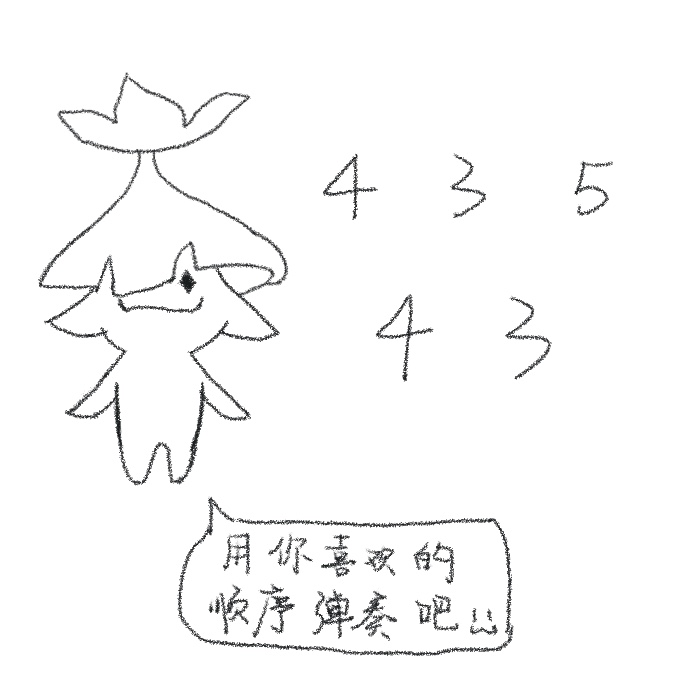 4 3 5
4 3
用你喜欢的
顺序弹奏吧